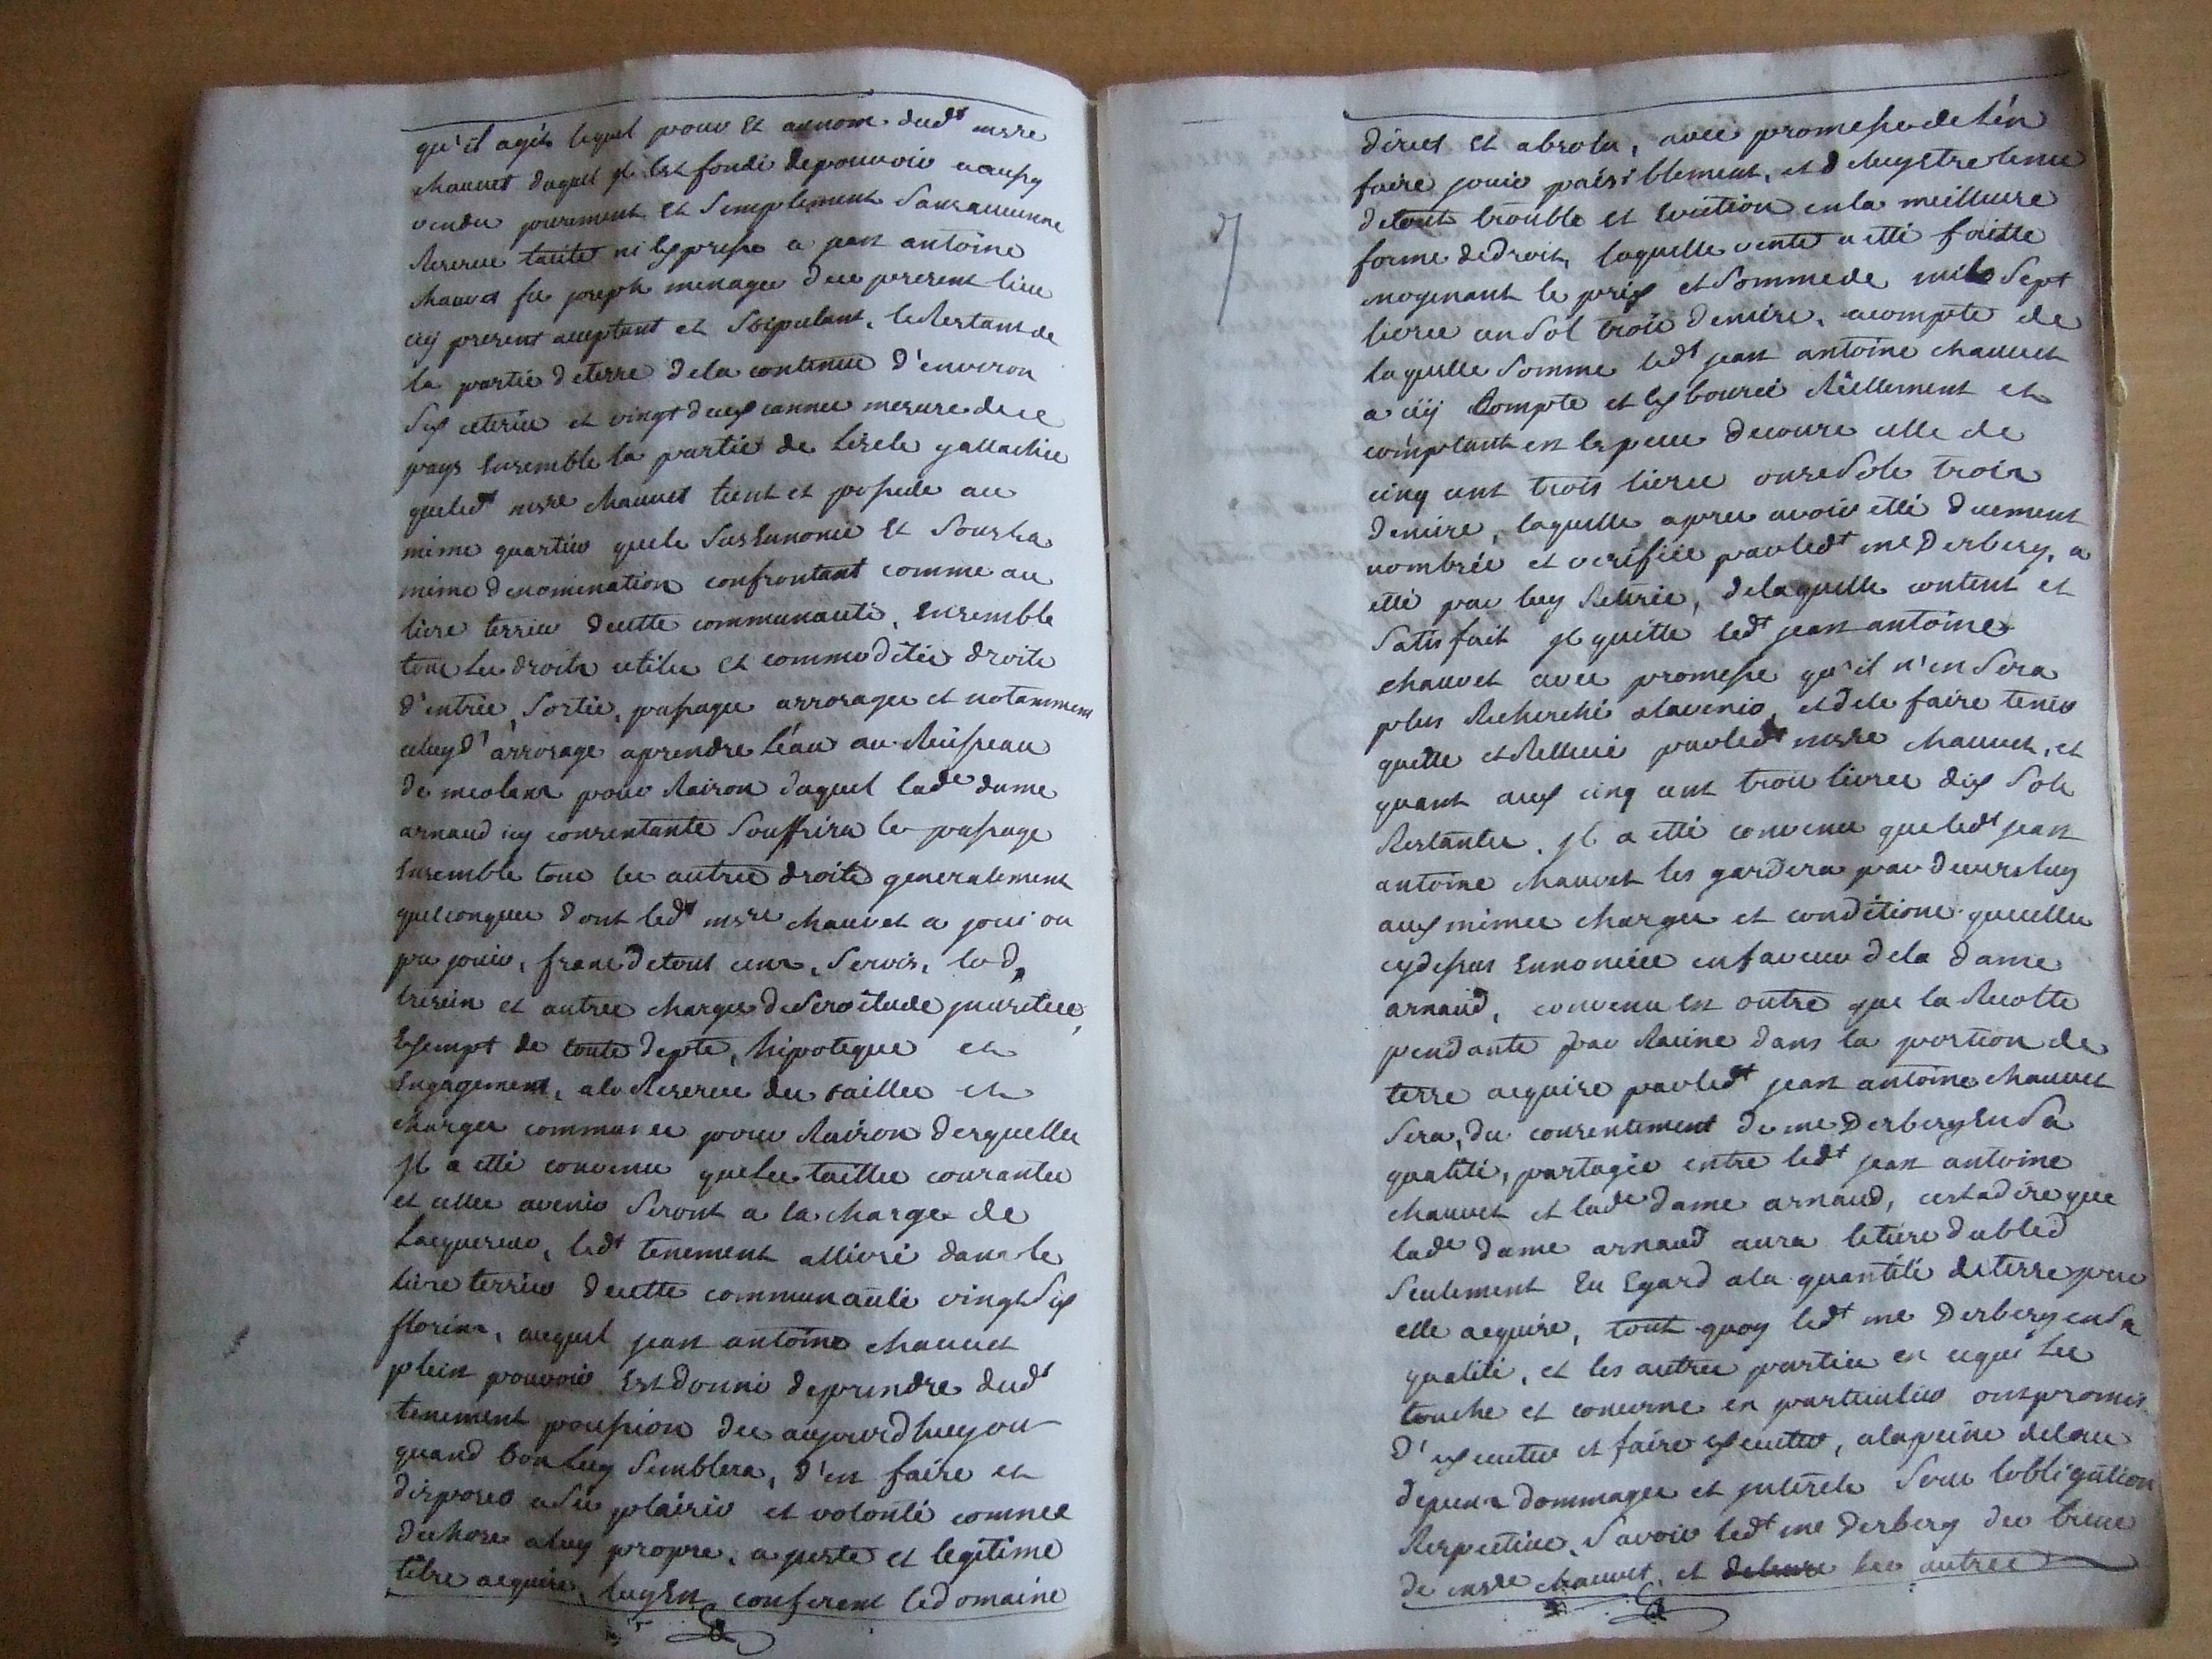 qu'il agit lequel pour et au nom dud.t mssre
chauvet duquel jl est fondé de pouvoir a aussy
vendu purement et simplement sans aucunne
reserve tacite ni expresse a jean antoine
chauvet fu joseph menager de ce present lieu
icy present aceptant et stipulant, le restant de
la partie de terre de la contenue d'environ
six eterées et vingt deux cannes mesure de ce
pays ensemble la partie de l'iscle y attachée
que led.t mssre chauvet tient et possede au
même quartier que le sus ennoncé et sous la
même denomination confrontant comme au
livre terrier de cette communauté, ensemble
tous les droits utiles et commoditées droits
d'entrée, sortie, passages arrosages et notamment
celuy d'arrosage a prendre l'eau au ruisseau
de meolans pour raison duquel lad.e dame
arnaud icy consentante souffrira le passage
ensemble tous les autres droits generalement
quelconques dont led.t mssre chauvet a joui ou
pu jouir, franc de tout cens, servis, lods,
tresein et autres charges de servitude
exempt de toute depte, hipoteque et
engagement, a la reserve des tailles et
charges communes pour raison desquelles
jl a etté convenu que les tailles courantes
et celles avenir seront a la charge de
lacquereur, led.t tenement allivré dans le
livre terrier de cette communauté vingt six
florins, auquel jean antoine chauvet
plein pouvoir est donné de prendre dud.t
tenement possession des aujourdhuy ou
quand bon luy semblera, d'en faire et
disposer a ses plaisir et volonté comme
de chose a luy propre, a juste et legitime
titre acquise, luy en conferent le domaine
direct et absolu, avec promesse de l'en
faire jouir paisiblement, et de luy etre tenu
de tout trouble et eviction en la meilleure
forme de droit, laquelle vente a etté faitte
moyenant le prix et somme de mille sept
livres un sol trois deniers, acompte de
laquelle somme led.t jean antoine chauvet
a icy compté et exboursé réellement et
comptant en especes de cours celle de
cinq cent trois livres onze sols trois
deniers, laquelle apres avoir etté duement
nombrée et verifiée par led.t me Derbery, a
etté par luy retirée, de laquelle content et
satisfait jl quitte led.t jean antoine
chauvet avec promesse qu'il n'en sera
plus recherché alavenir, et de le faire tenir
quitte et rellevé par led.t mssre chauvet, et
quant aux cinq cent trois livres dix sols
restantes, jl a etté convenu que led.t jean
antoine chauvet les gardera par devers luy
aux mêmes charges et conditions que celles
cy dessus ennoncées en faveur de la dame
arnaud, convenu en outre que la recolte
pendante par racine dans la portion de
terre acquise par led.t jean antoine chauvet
sera, du consentement de me Derbery en sa
qualité, partagée entre led.t jean antoine
chauvet et lad.e dame arnaud, cest a dire que
lad.e dame arnaud aura le tiers du bled
seulement eu egard a la quantité de terre par
elle acquise, tout quoy led.t me Derbery en sa
qualité, et les autres parties en ce qui les
touche et concerne en particulier ont promis
d'executer et faire executer, a la peine de tous
depens dommages et jnterets sous lobligation
respective, savoir led.t me Derbery des biens
de mssre chauvet, et les autres